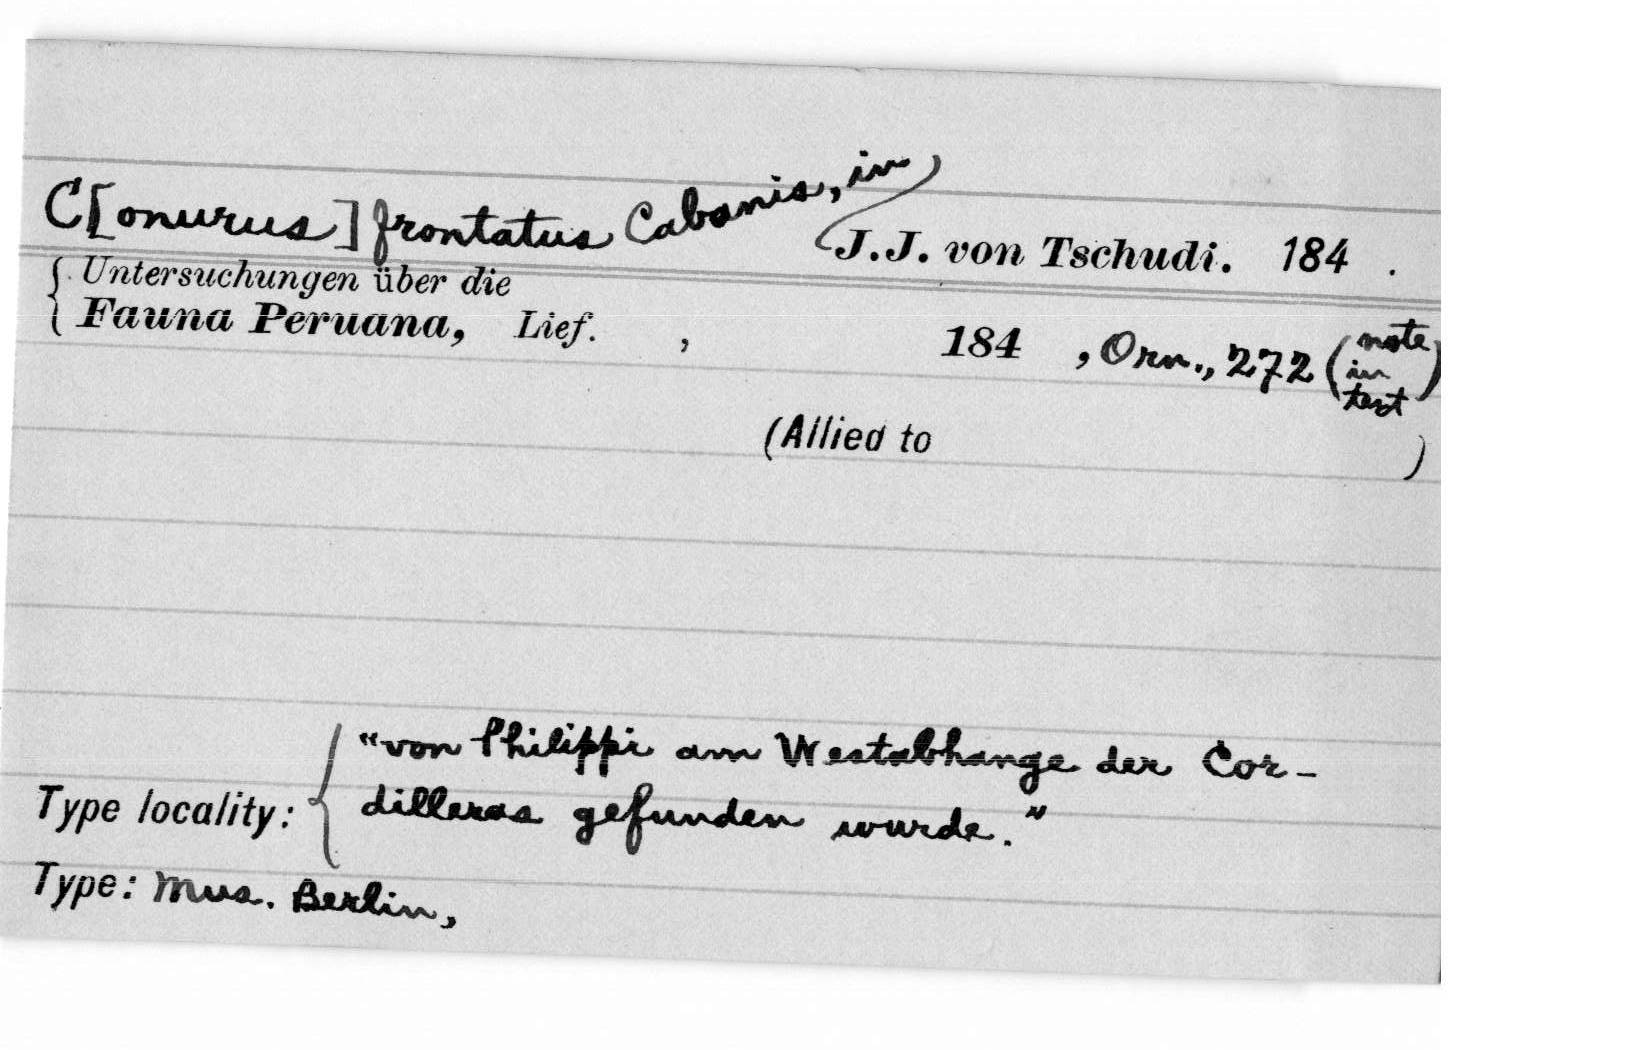 C[onurus] frontatus Cabanis, in
J.J. von Tschudi. 184 .
Untersuchungen über die
Fauna Peruana, Lief. , 184 , Orn., 272 (note in text)
(Allied to )
"von Philippi am Westabhange der Cor-
Type locality: dilleras gefunden wurde."
Type: Mus. Berlin,